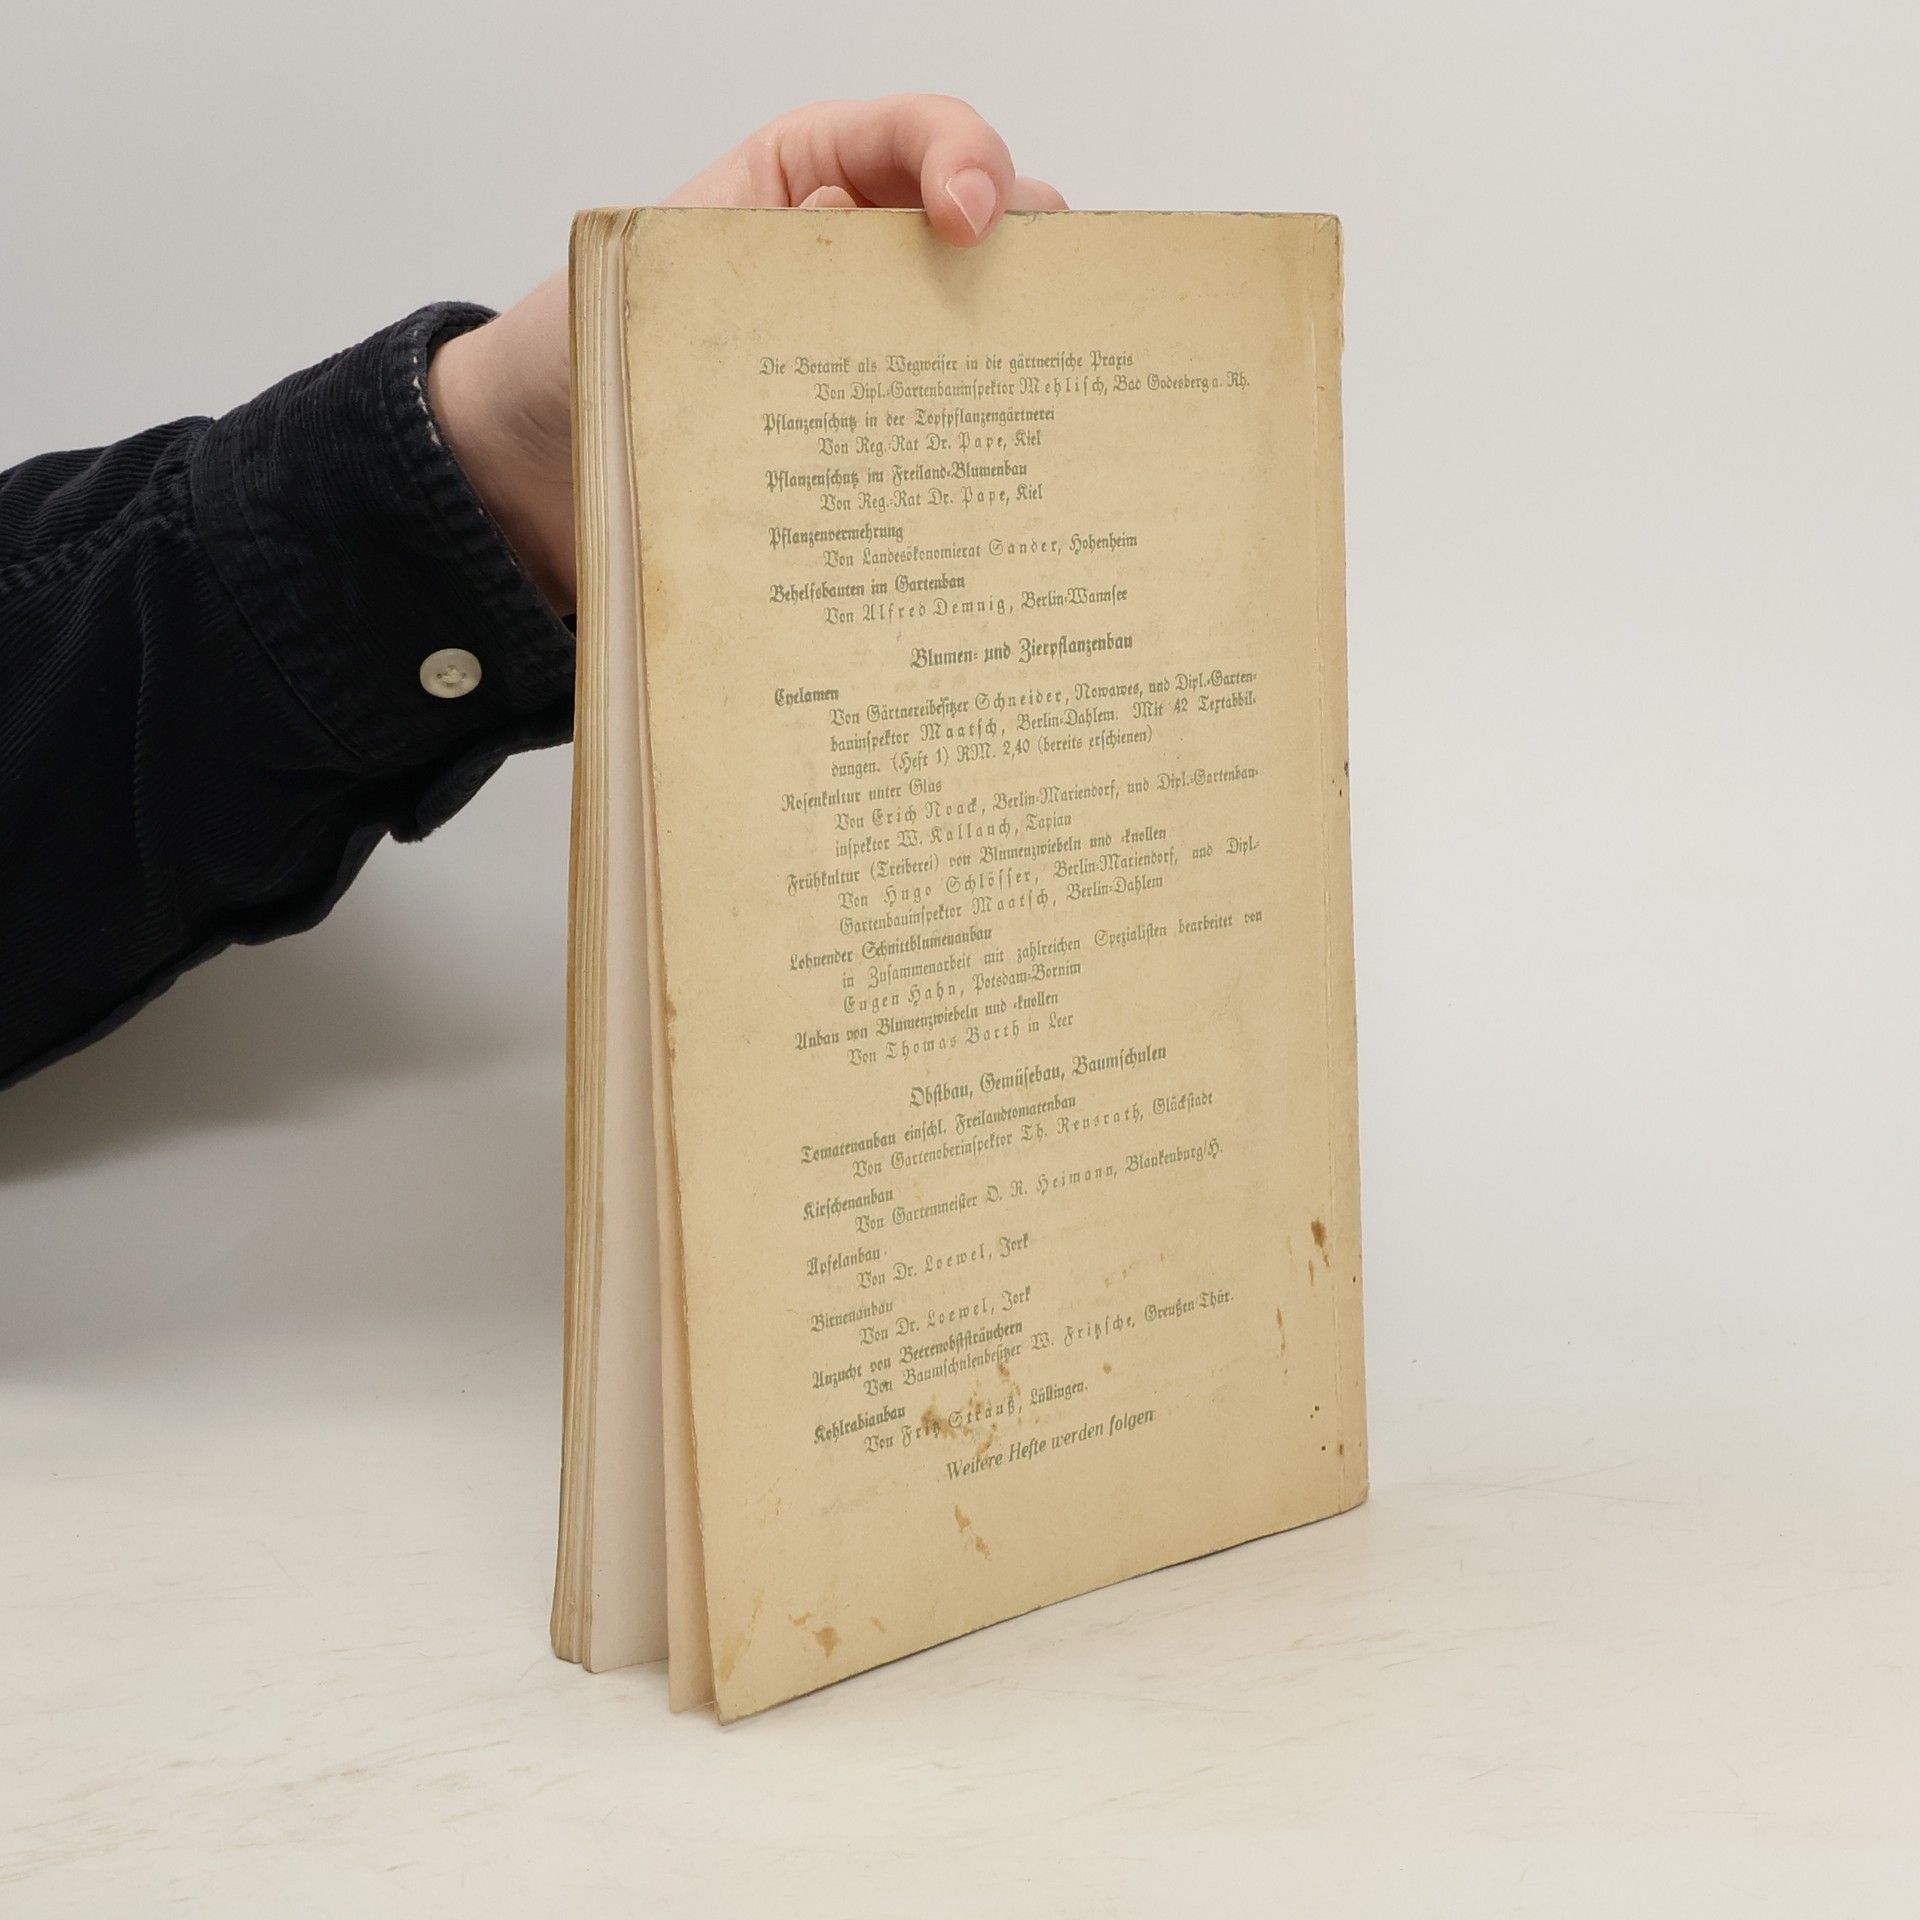 Die Botanik als Wegweiser in die gärtnerische Praxis
Von Dipl.-Gartenbauinspektor Mehlisch, Bad Godesberg a. Rh.
Pflanzenschutz in der Topfpflanzengärtnerei
Von Reg.-Rat Dr. Pape, Kiel
Pflanzenschutz im Freiland-Blumenbau
Von Reg.-Rat Dr. Pape, Kiel
Pflanzenvermehrung
Von Landesökonomierat Sander, Hohenheim
Behelfsbauten im Gartenbau
Von Alfred Demnig, Berlin-Wannsee
Blumen- und Zierpflanzenbau
Cyclamen
Von Gärtnereibesitzer Schneider, Nowawes, und Dipl.-Garten-
bauinspektor Maatsch, Berlin-Dahlem. Mit 42 Textabbil-
dungen. (Heft 1) RM. 2,40 (bereits erschienen)
Rosenkultur unter Glas
Von Erich Noack, Berlin-Mariendorf, und Dipl.-Gartenbau-
inspektor W. Kallauch, Tapiau
Frühkultur (Treiberei) von Blumenzwiebeln und -knollen
Von Hugo Schlösser, Berlin-Mariendorf, und Dipl.-
Gartenbauinspektor Maatsch, Berlin-Dahlem
Lohnender Schnittblumenanbau
in Zusammenarbeit mit zahlreichen Spezialisten bearbeitet von
Eugen Hahn, Potsdam-Bornim
Anbau von Blumenzwiebeln und -knollen
Von Thomas Barth in Leer
Obstbau, Gemüsebau, Baumschulen
Tomatenanbau einschl. Freilandtomatenbau
Von Gartenoberinspektor Th. Reusrath, Glückstadt
Kirschenanbau
Von Gartenmeister O. R. Heimann, Blankenburg/H.
Apfelanbau
Von Dr. Loewel, Jork
Birnenanbau
Von Dr. Loewel, Jork
Anzucht von Beerenobststräuchern
Von Baumschulenbesitzer W. Fritzsche, Greußen/Thür.
Kohlrabianbau
Von Fritz Strauß, Lüllingen.
Weitere Hefte werden folgen